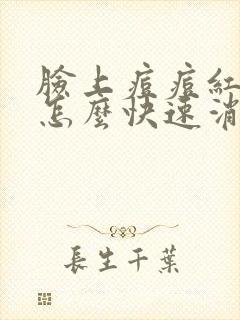 臉上痘痘紅
怎麼快速消
長生千葉